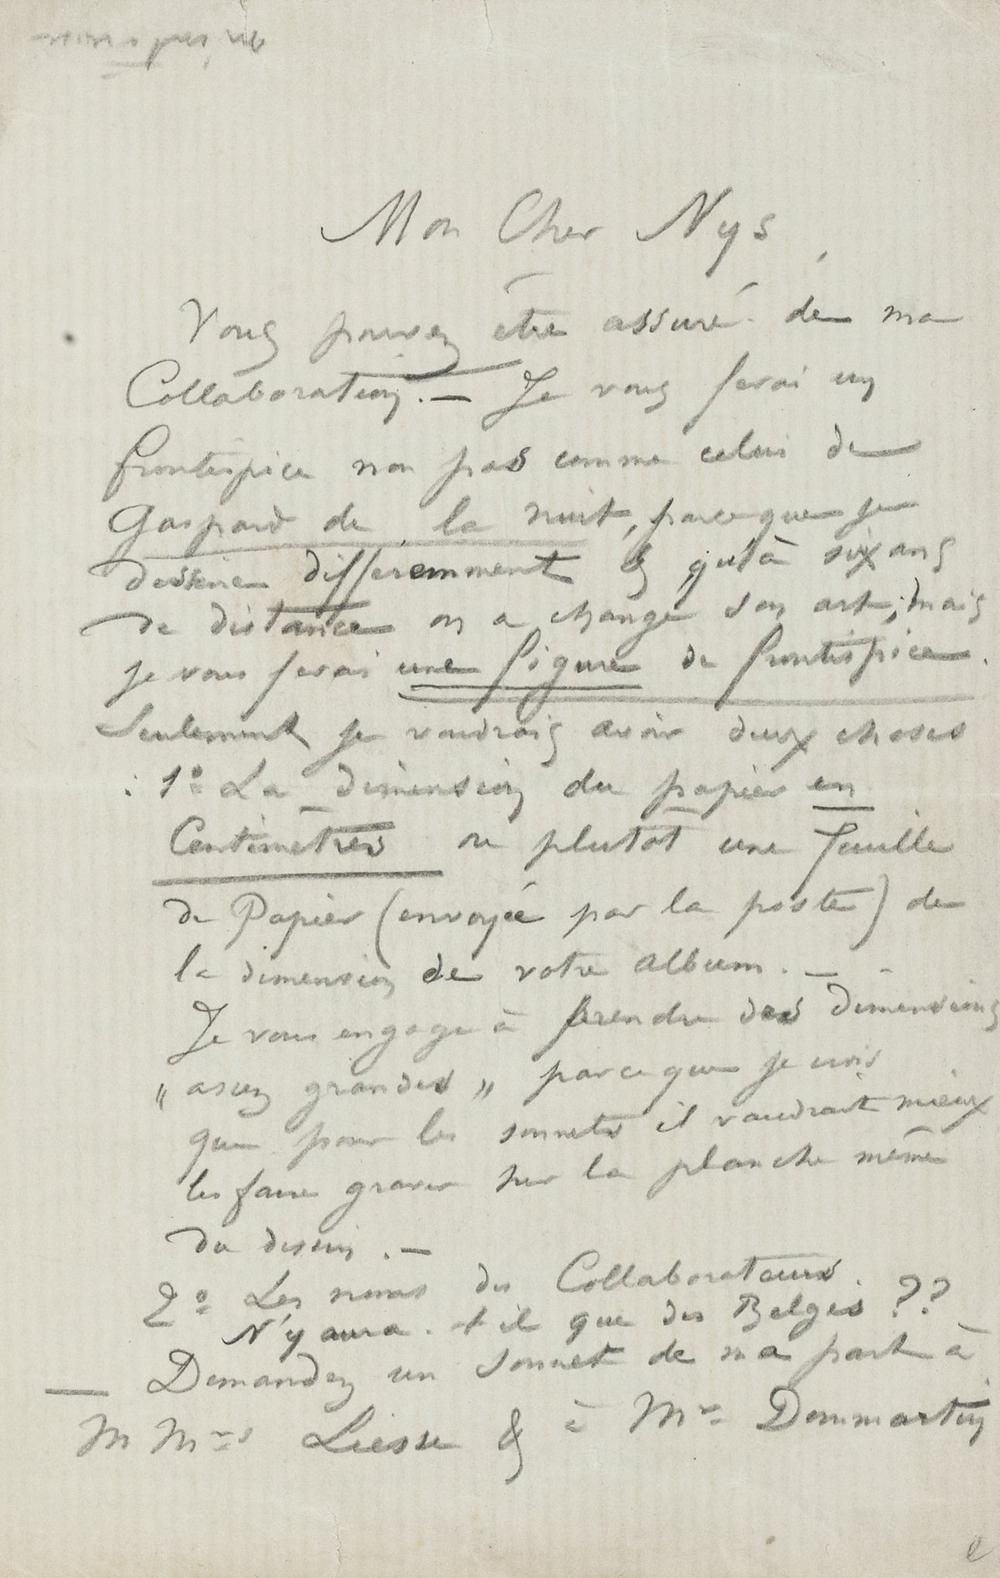 Mon Cher Nys,
Vous pouvez être assuré de ma
Collaboration. — Je vous ferai un
frontispice non pas comme celui de
Gaspard de la nuit, parce que je
dessine différemment & qu'à six ans
de distance on a changé son art; mais
je vous ferai une figure de frontispice.
Seulement je voudrais avoir deux choses
: 1º La dimension du papier en
Centimètres ou plutôt une feuille
de Papier (envoyée par la poste) de
la dimension de votre album. — -
Je vous engage à prendre des dimensions
„ assez grandes „ parce que je crois
que pour les sonnets il vaudrait mieux
les faire graver sur la planche même
du dessin. —
2º Les noms des Collaborateurs.
N'y aura-t-il que des Belges ??
— Demandez un sonnet de ma part à
M Mrs Liesse & à Mr Dommartin